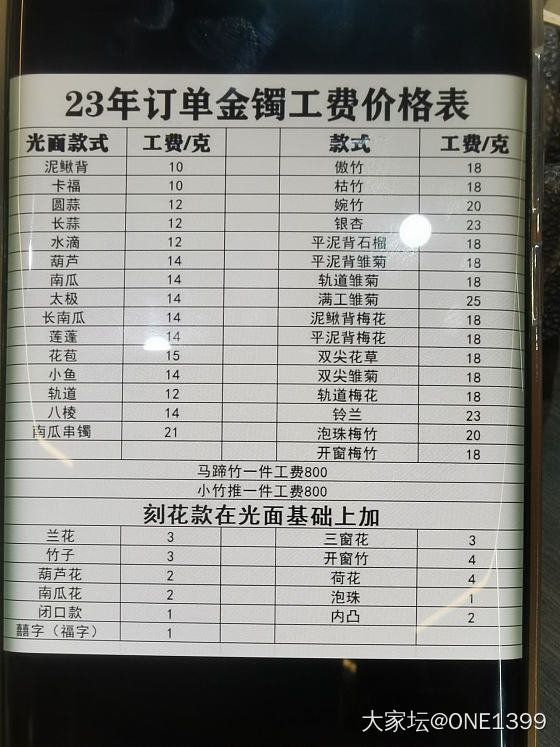 23年订单金镯工费价格表
光面款式 工费/克 款式 工费/克
泥鳅背 10 傲竹 18
卡福 10 枯竹 18
圆蒜 12 婉竹 20
长蒜 12 银杏 23
水滴 12 平泥背石榴 18
葫芦 14 平泥背雏菊 18
南瓜 14 轨道雏菊 18
太极 14 满工雏菊 25
长南瓜 14 泥鳅背梅花 18
莲蓬 14 平泥背梅花 18
花苞 15 双尖花草 18
小鱼 14 双尖雏菊 18
轨道 12 轨道梅花 18
八棱 14 铃兰 23
南瓜串镯 21 泡珠梅竹 20
开窗梅竹 18
马蹄竹一件工费800
小竹推一件工费800
刻花款在光面基础上加
兰花 3 三窗花 3
竹子 3 开窗竹 4
葫芦花 2 荷花 4
南瓜花 2 泡珠 1
闭口款 1 内凸 2
囍字（福字） 1
大家坛@ONE1399